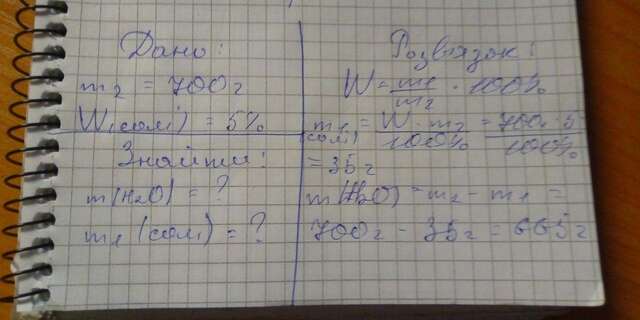 Дано:
m₂ = 700г
W(солі) = 5%
Знайти:
m(H₂O) = ?
m₁(солі) = ?
Розв'язок:
W = m₁/m₂ · 100%
m₁(солі) = W · m₂/100% = 700г · 5/100%
= 35г
m(H₂O) = m₂ - m₁ =
700г - 35г = 665г